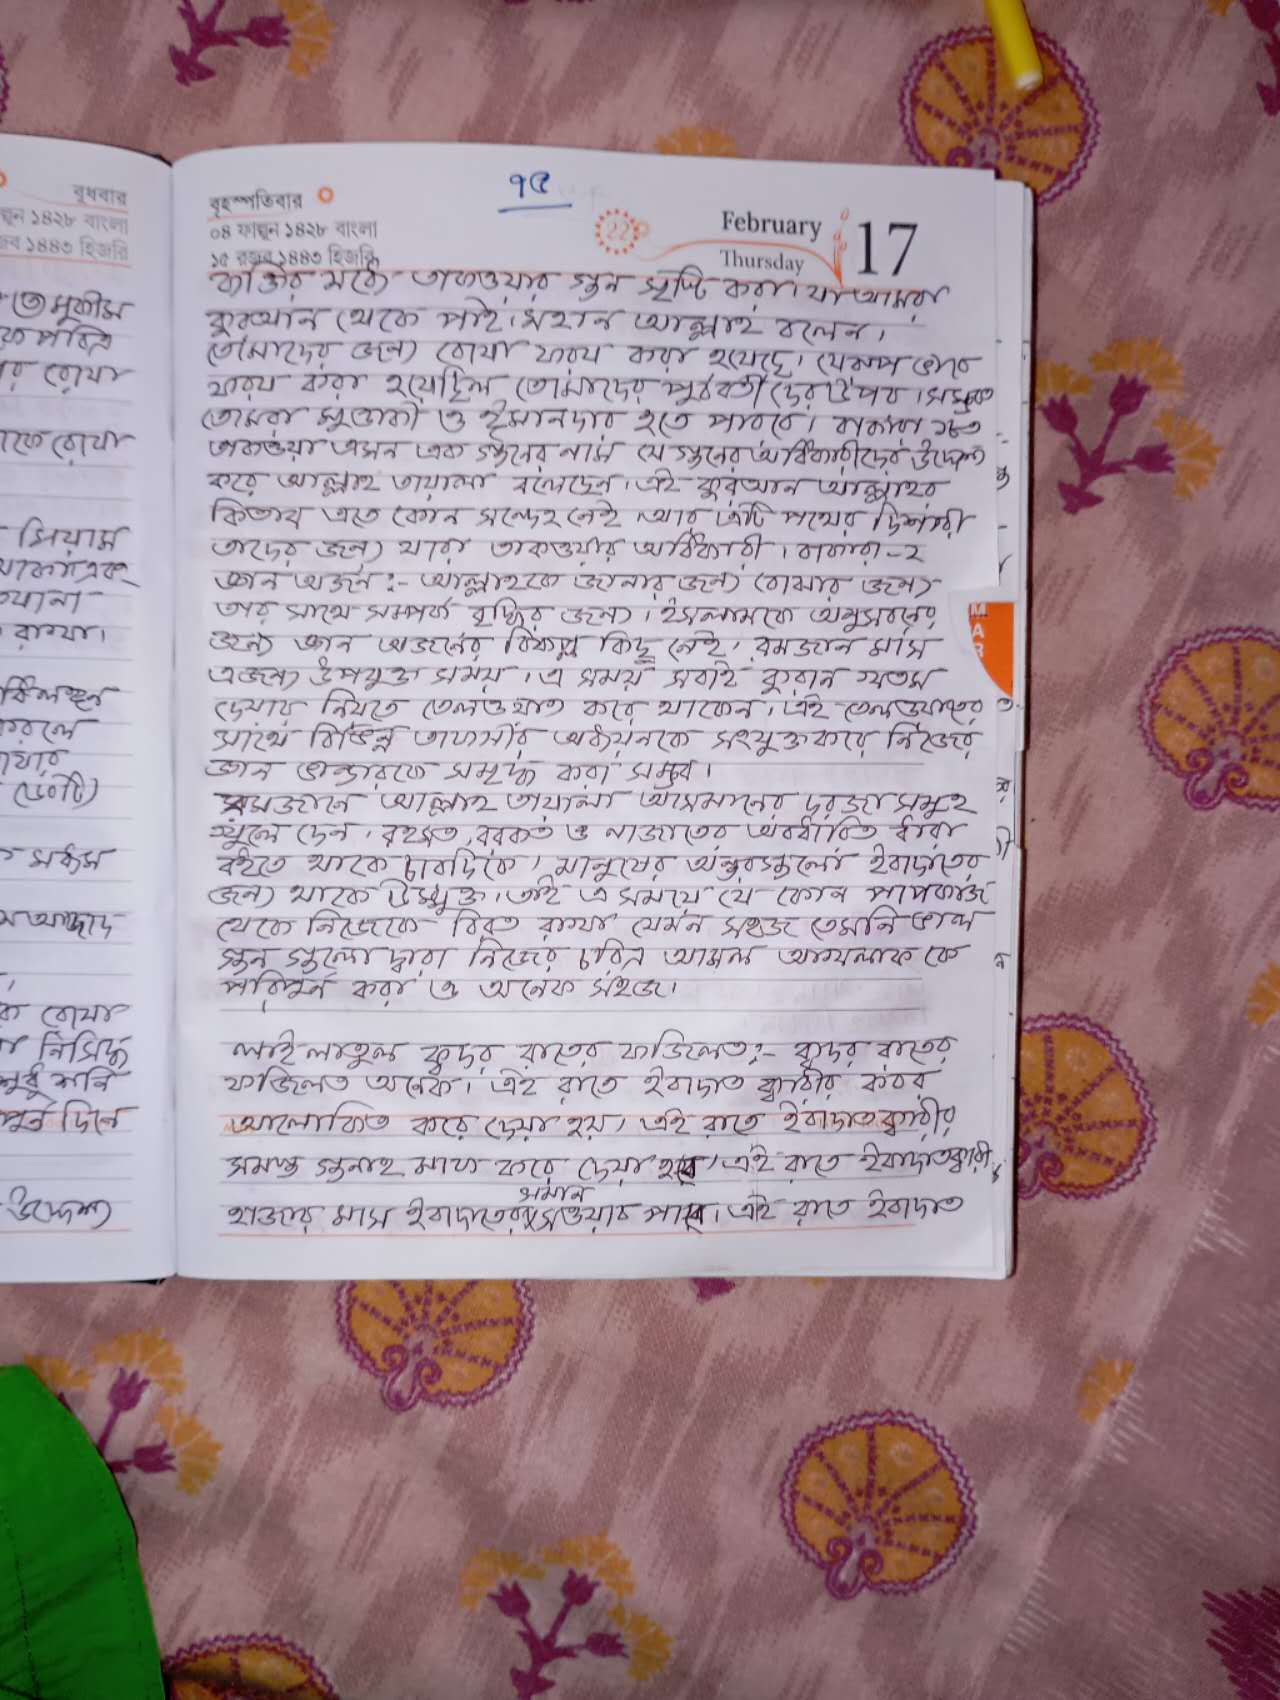 বুধবার
১৪২৮ বাংলা
১৪৪৩ হিজরি
রোযা
রোযা
সিয়াম
রাখা।
করলে
(৩০টি)
রোযা
নিসিদ্ধ
দিনে
উদ্দেশ্য
৭৫
বৃহস্পতিবার
০৪ ফাল্গুন ১৪২৮ বাংলা
১৫ রজব ১৪৪৩ হিজরি
22
February
Thursday
17
ব্যক্তির মধ্যে তাকওয়ার গুন সৃষ্টি করা। যা আমরা
কুরআন থেকে পাই। মহান আল্লাহ বলেন,
তোমাদের জন্য রোযা ফরয করা হয়েছে। যেরূপ ভাবে
ফরয করা হয়েছিল তোমাদের পূর্ববর্তীদের উপর। সম্ভবত
তোমরা মুত্তাকী ও ঈমানদার হতে পারবে। বাকারা ১৮৩
তাকওয়া এমন এক গুনের নাম যে গুনের অধিকারীদের উদ্দেশ্য
করে আল্লাহ তায়ালা বলেছেন। এই কুরআন আল্লাহর
কিতাব এতে কোন সন্দেহ নেই আর এটি পথের দিশারী
তাদের জন্য যারা তাকওয়ার অধিকারী। বাকারা-২
জ্ঞান অর্জন:- আল্লাহকে জানার জন্য বোঝার জন্য
তার সাথে সম্পর্ক বৃদ্ধির জন্য। ইসলামকে অনুসরনের
জন্য জ্ঞান অর্জনের বিকল্প কিছু নেই, রমজান মাস
এজন্য উপযুক্ত সময়। এ সময় সবাই কুরান খতম
দেয়ার নিয়তে তেলওয়াত করে থাকেন। এই তেলওয়াতের
সাথে বিভিন্ন তাফসীর অধ্যয়নকে সংযুক্ত করে নিজের
জ্ঞান ভান্ডারকে সমৃদ্ধ করা সম্ভব।
রমজানে আল্লাহ তায়ালা আসমানের দরজা সমুহ
খুলে দেন, রহমত, বরকত ও নাজাতের অবধারিত ধারা
বইতে থাকে চারদিকে, মানুষের অন্তরগুলো ইবাদাতের
জন্য থাকে উন্মুক্ত। তাই এ সময়ে যে কোন পাপকাজ
থেকে নিজেকে বিরত রাখা যেমন সহজ তেমনি ভাল
গুন গুলো দ্বারা নিজের চরিত্র আমল আখলাক কে
পরিপূর্ন করা ও অনেক সহজ।
লাইলাতুল ক্বদর রাতের ফজিলত:- ক্বদর রাতের
ফজিলত অনেক। এই রাতে ইবাদাত ক্বারীর কবর
আলোকিত করে দেয়া হয়, এই রাতে ইবাদাত ক্বারীর
সমস্ত গুনাহ মাফ করে দেয়া হবে, এই রাতে ইবাদাতক্বারী
হাজার মাস ইবাদাতের সমান সওয়াব পাবে। এই রাতে ইবাদাত
MAR